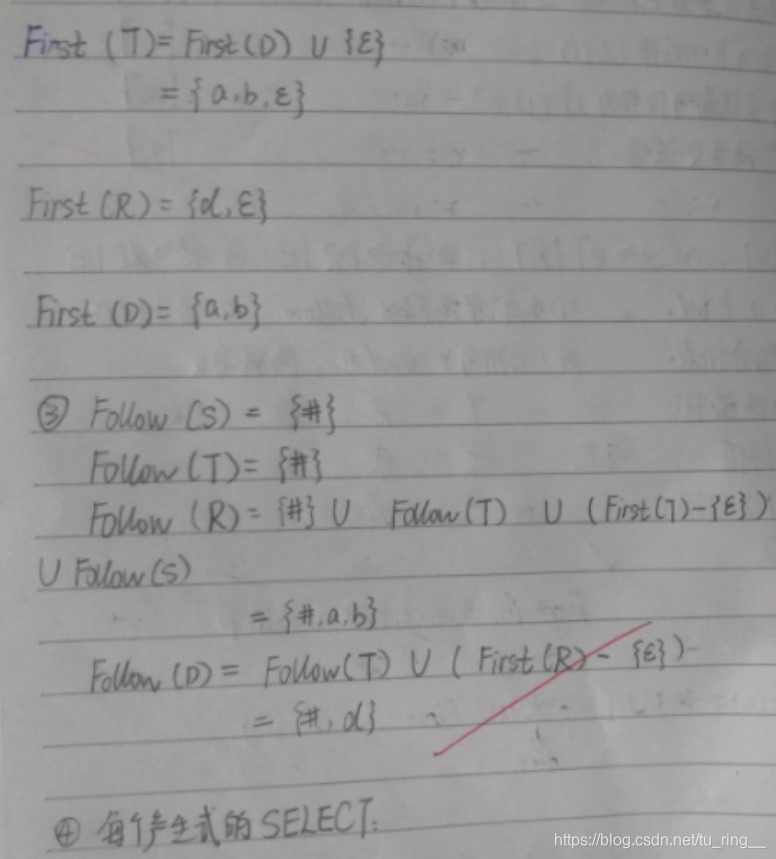 First (T)= First(D) ∪ {ε}
= {a,b,ε}
First(R) = {d,ε}
First (D)= {a,b}
③ Follow (S) = {#}
Follow (T)= {#}
Follow (R)= {#} ∪ Follow(T) ∪ (First(T)-{ε})
∪ Follow(S)
= {#,a,b}
Follow (D) = Follow(T) ∪ ( First(R) - {ε})
= {#, d}
④ 每个产生式的SELECT:
https://blog.csdn.net/tu_ring__